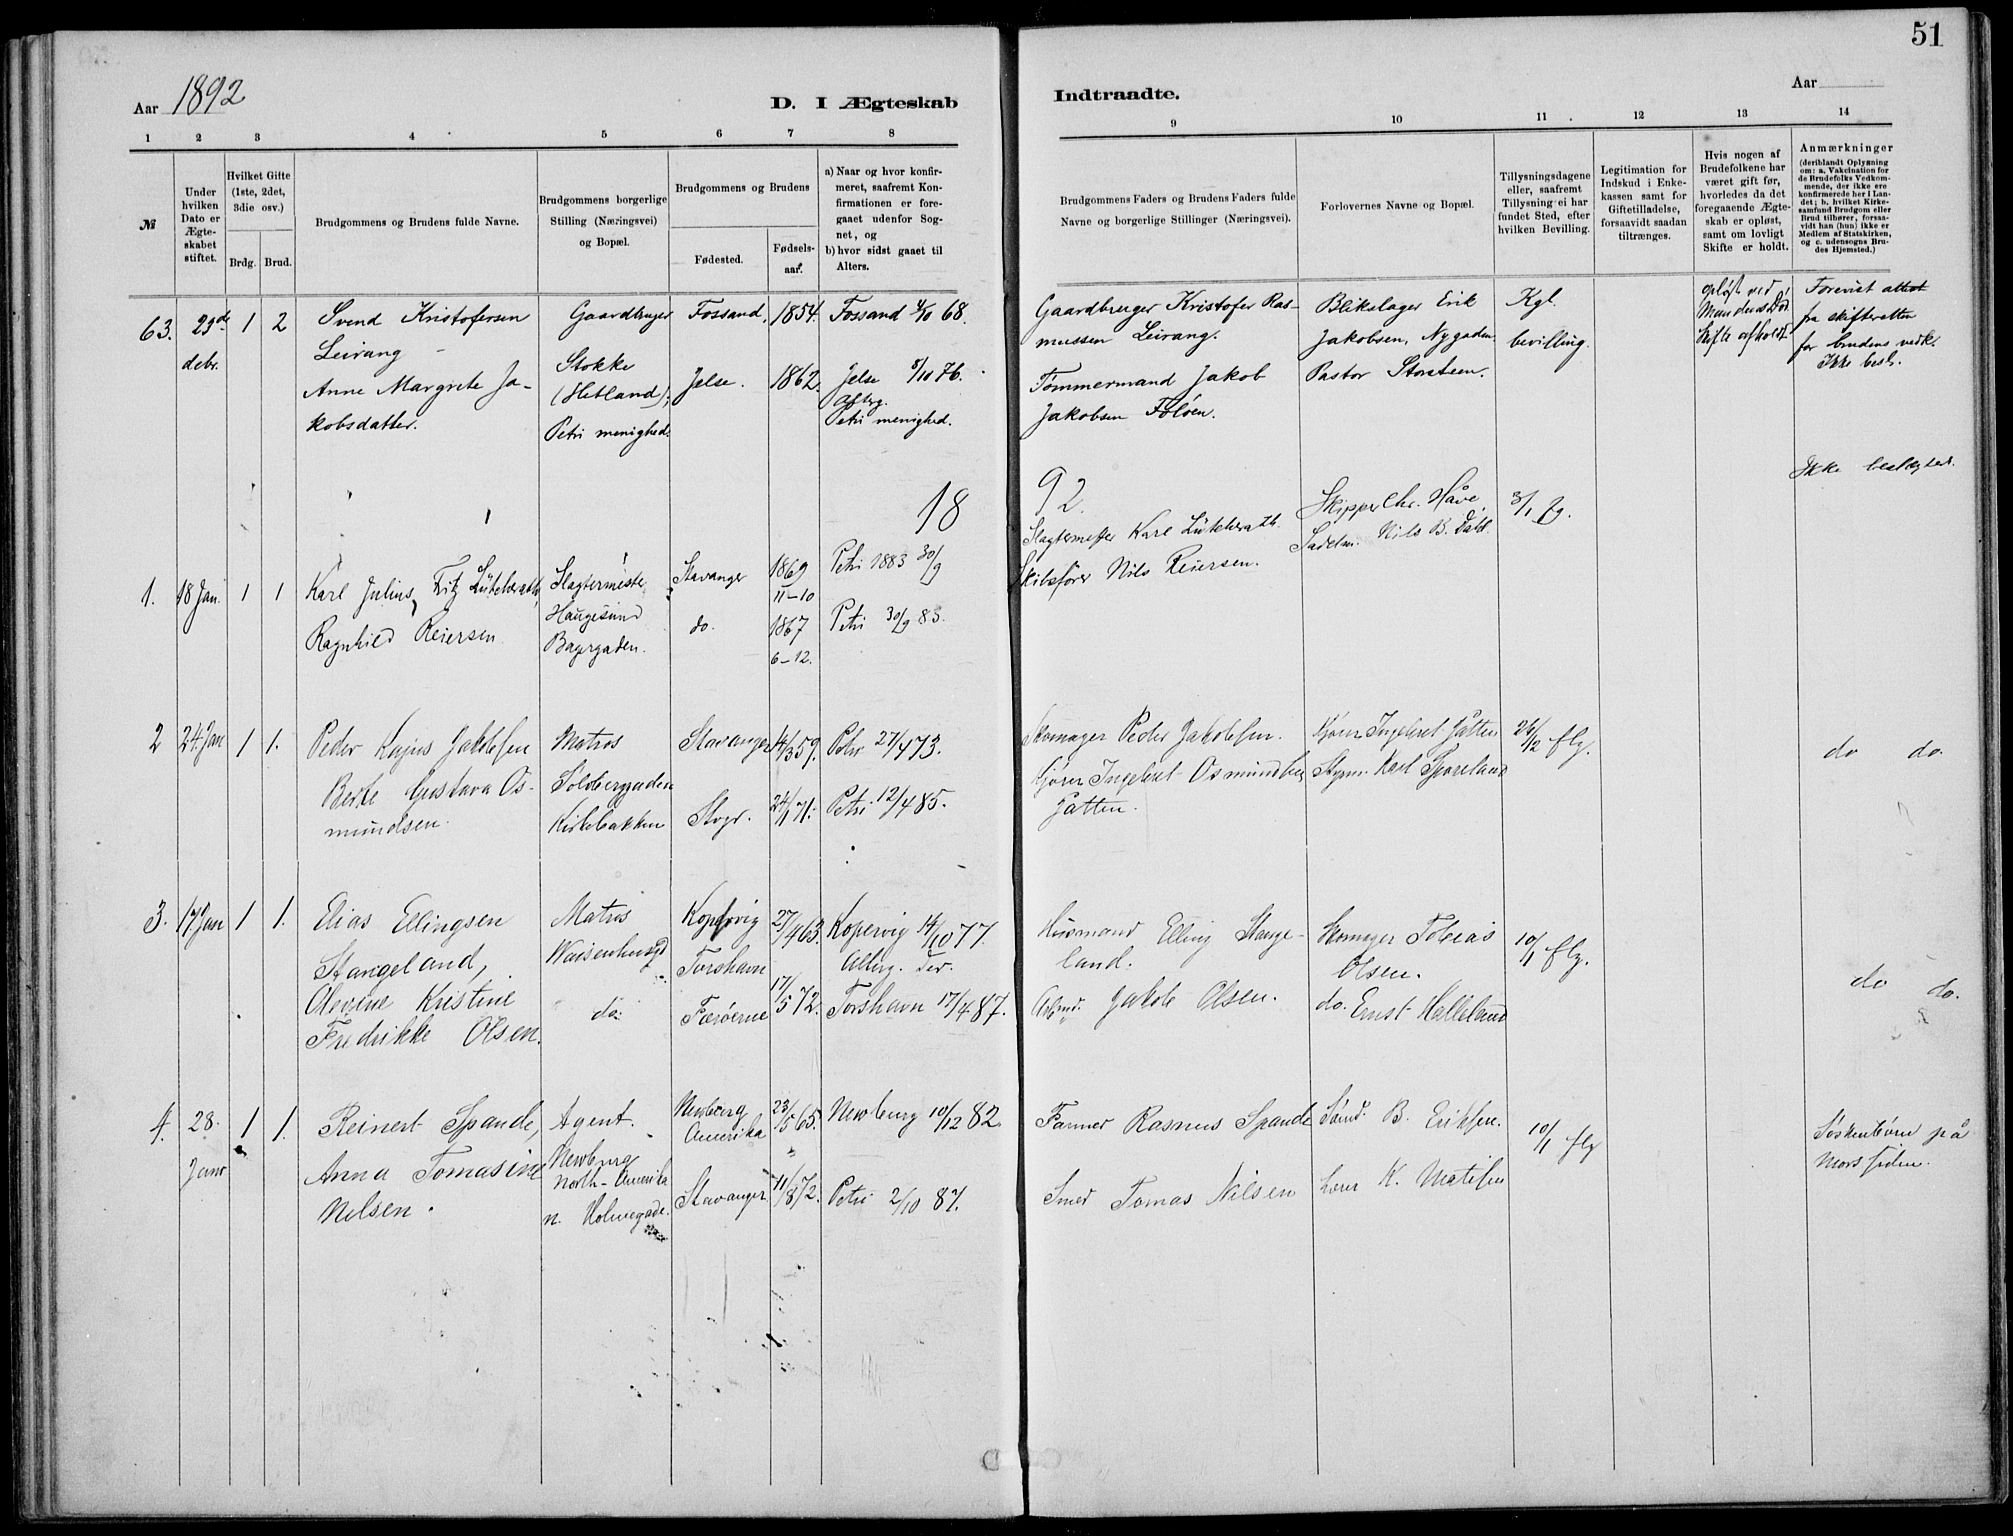 51
Aar 1892
D. I Ægteskab
Indtraadte.
Aar
1 2 3 4 5 6 7 8
9 10 11 12 13 14
№
Under hvilken Dato er Ægteskabet stiftet.
Hvilket Gifte (1ste, 2det, 3die osv.)
Brdg. Brud.
Brudgommens og Brudens fulde Navne.
Brudgommens borgerlige Stilling (Næringsvei) og Bopæl.
Brudgommens og Brudens
Fødested.
Fødselsaar.
a) Naar og hvor konfirmeret, saafremt Konfirmationen er foregaaet udenfor Sognet, og
b) hvor sidst gaaet til Alters.
Brudgommens Faders og Brudens Faders fulde Navne og borgerlige Stillinger (Næringsvei).
Forlovernes Navne og Bopæl.
Tillysningsdagene eller, saafremt Tillysning ei har fundet Sted, efter hvilken Bevilling.
Legitimation for Indskud i Enkekassen samt for Giftetilladelse, forsaavidt saadan tiltrænges.
Hvis nogen af Brudefolkene har været gift før, hvorledes da det foregaaende Ægteskab er opløst, samt om lovligt Skifte er holdt.
Anmærkninger
(deriblandt Oplysning om: a. Vakcination for de Brudefolks Vedkommende, der ikke ere konfirmerede her i Landet; b. hvilket Kirkesamfund Brudgom eller Brud tilhører, forsaavidt han (hun) ikke er Medlem af Statskirken, og c. udensogns Brudes Hjemsted.)
63. 29de debr. 1 2
Svend Kristofersen
Leirang
Anne Margrete Ja-
kobsdatter.
Gaardbruger
Stokke
(Hetland);
Petri menighed.
Fossand, 1854. Fossand 4/10 68.
Jelse. 1862. Jelse 8/10 76.
Altrg.
Petri menighed.
Gaardbruger Kristofer Ras-
mussen Leirang.
Tømmermand Jakob
Jakobsen Foløen.
Blikslager Erik
Jakobsen, Nygaden.
Pastor Storsteen.
Kgl.
bevilling.
opløst ved
Mandens Død.
Skifte afholdt.
Forevist attest
fra skifteretten
for brudens vedk.
Ikke besl.
18
92
1. 18 Jan. 1 1
Karl Julius Fritz Lütcherath,
Ragnhild Reiersen
Slagtermester
Haugesund
Bagergaden.
Stavanger 1869
11-10
do. 1867
6-12.
Petri 1883 30/9
Petri 30/9 83.
Slagtermester Karl Lütcherath.
Skibsfører Nils Reiersen.
Skipper Chr. Håve,
Sadelm. Nils B. Dahl
3/1 fg.
Ikke beslægtet.
2 24. Jan 1 1.
Peder Kajus Jakobsen
Berte Gustava Os-
mundsen.
Matros
Solbergaden
Kirkebakken
Stavanger 14/3 59. Petri 27/4 73.
Stvgr. 24/1 71. Petri 12/4 85.
Skomager Peder Jakobsen.
Kjører Ingebret Osmundsen
Jåtten.
Kjører Ingebret Jåtten
Styrm. Karl Sporeland
26/12 flg.
do do.
3. 17 Jan 1 1.
Elias Ellingsen
Stangeland,
Olevine Kristine
Fredrikke Olsen.
Matros
Waisenhusgd
do.
Kopervig 27/4 63. Kopervig 14/10 77.
Torshavn
Færøerne 17/5 72. Torshavn 17/4 87.
Husmand Elling Stange-
land.
Arbmd. Jakob Olsen.
Skomager Tobias
Olsen.
do. Ernst Halleland
10/1 flg.
do do.
4. 28. Janr 1 1.
Reinert Spande,
Anna Tomasine
Nilsen.
Agent.
Newburg
North-Amerika
n. Holmegade.
Newburg
Amerika 23/5 65. Newburg 10/12 82.
Stavanger 11/8 72. Petri 2/10 87.
Farmer Rasmus Spande
Smed Tomas Nilsen
Smd. B. Eriksen.
Lærer K. Matisen
10/1 flg
Søskenbørn på
Mors siden.